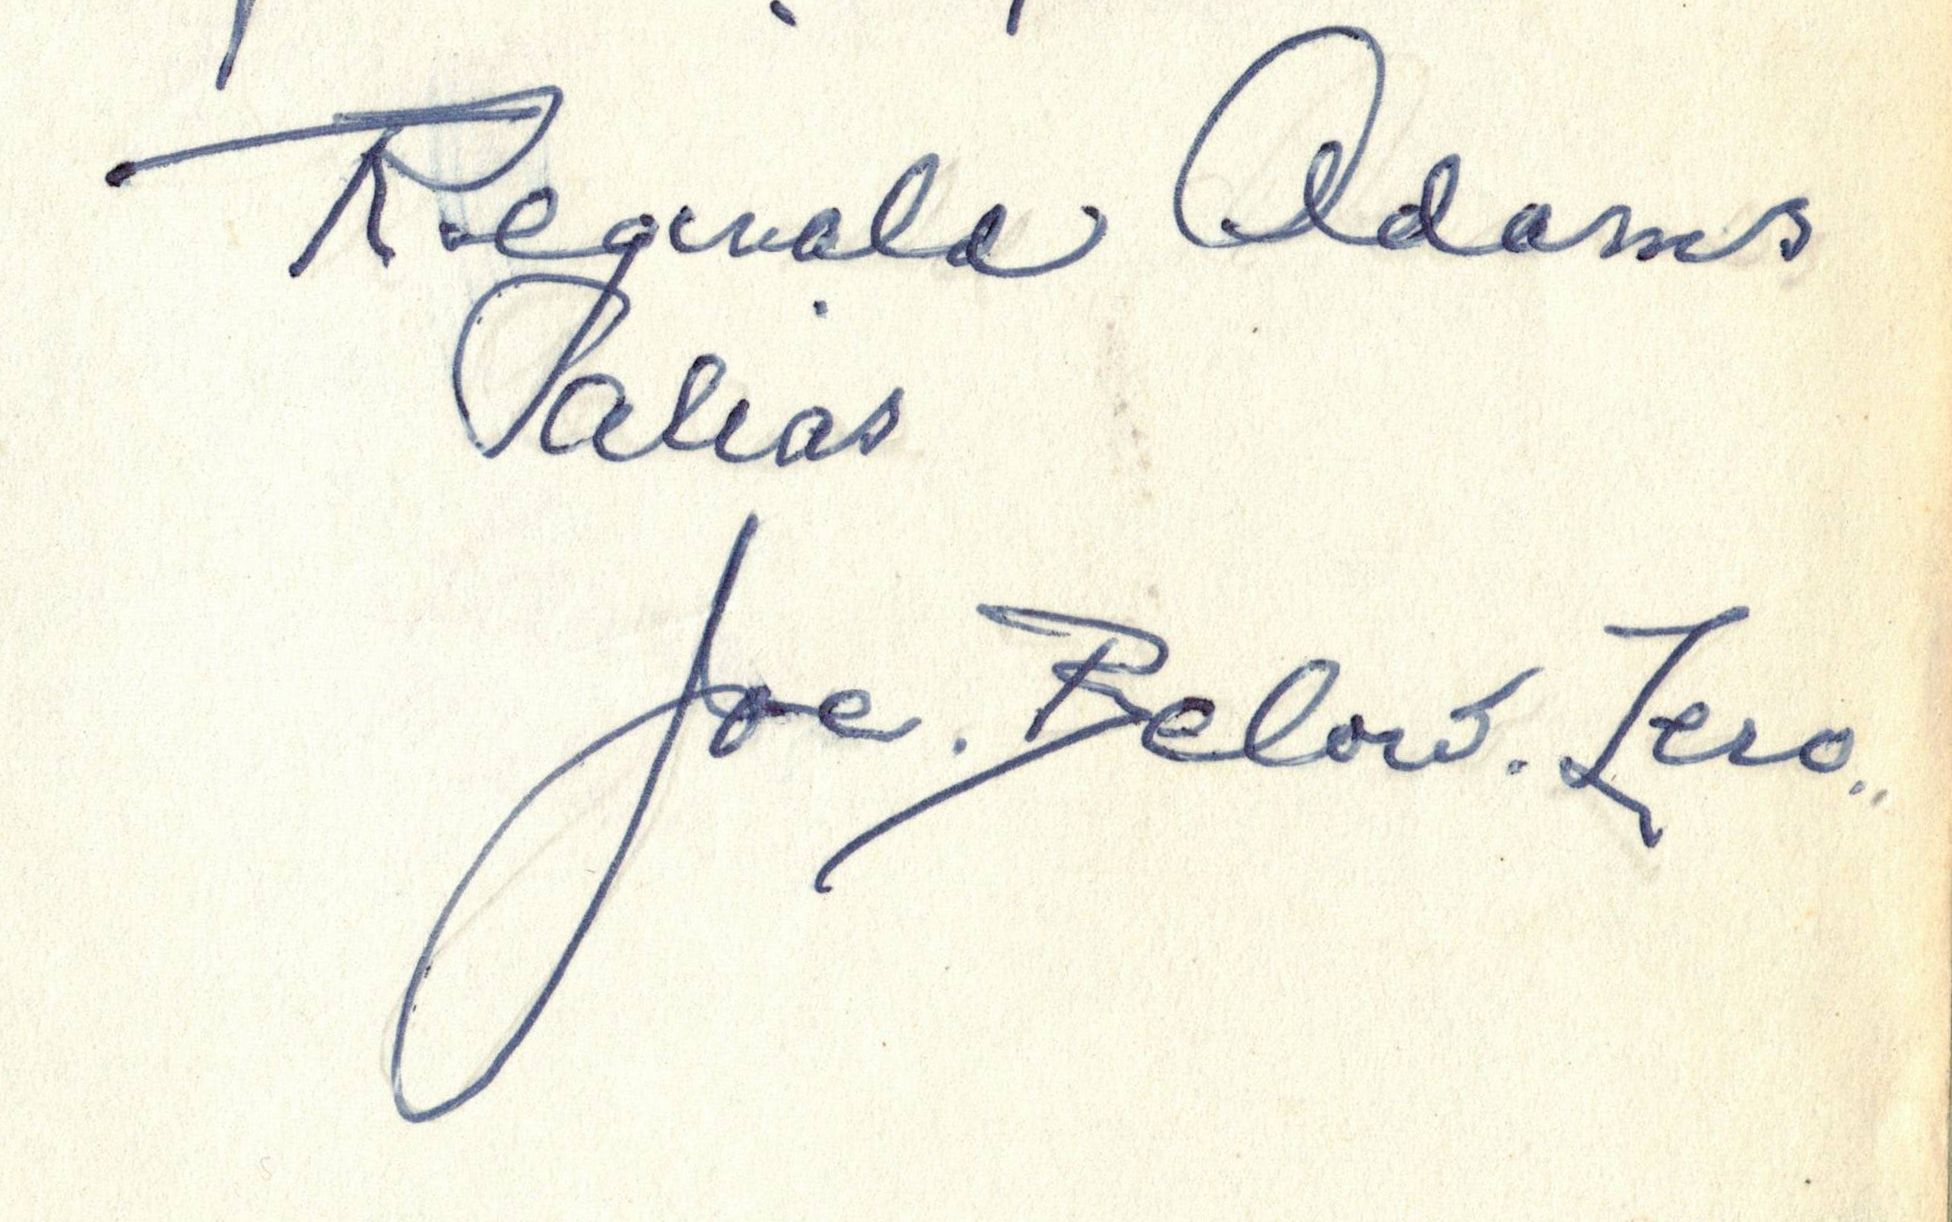 Reginald Adams
alias
Joe. Below. Zero..